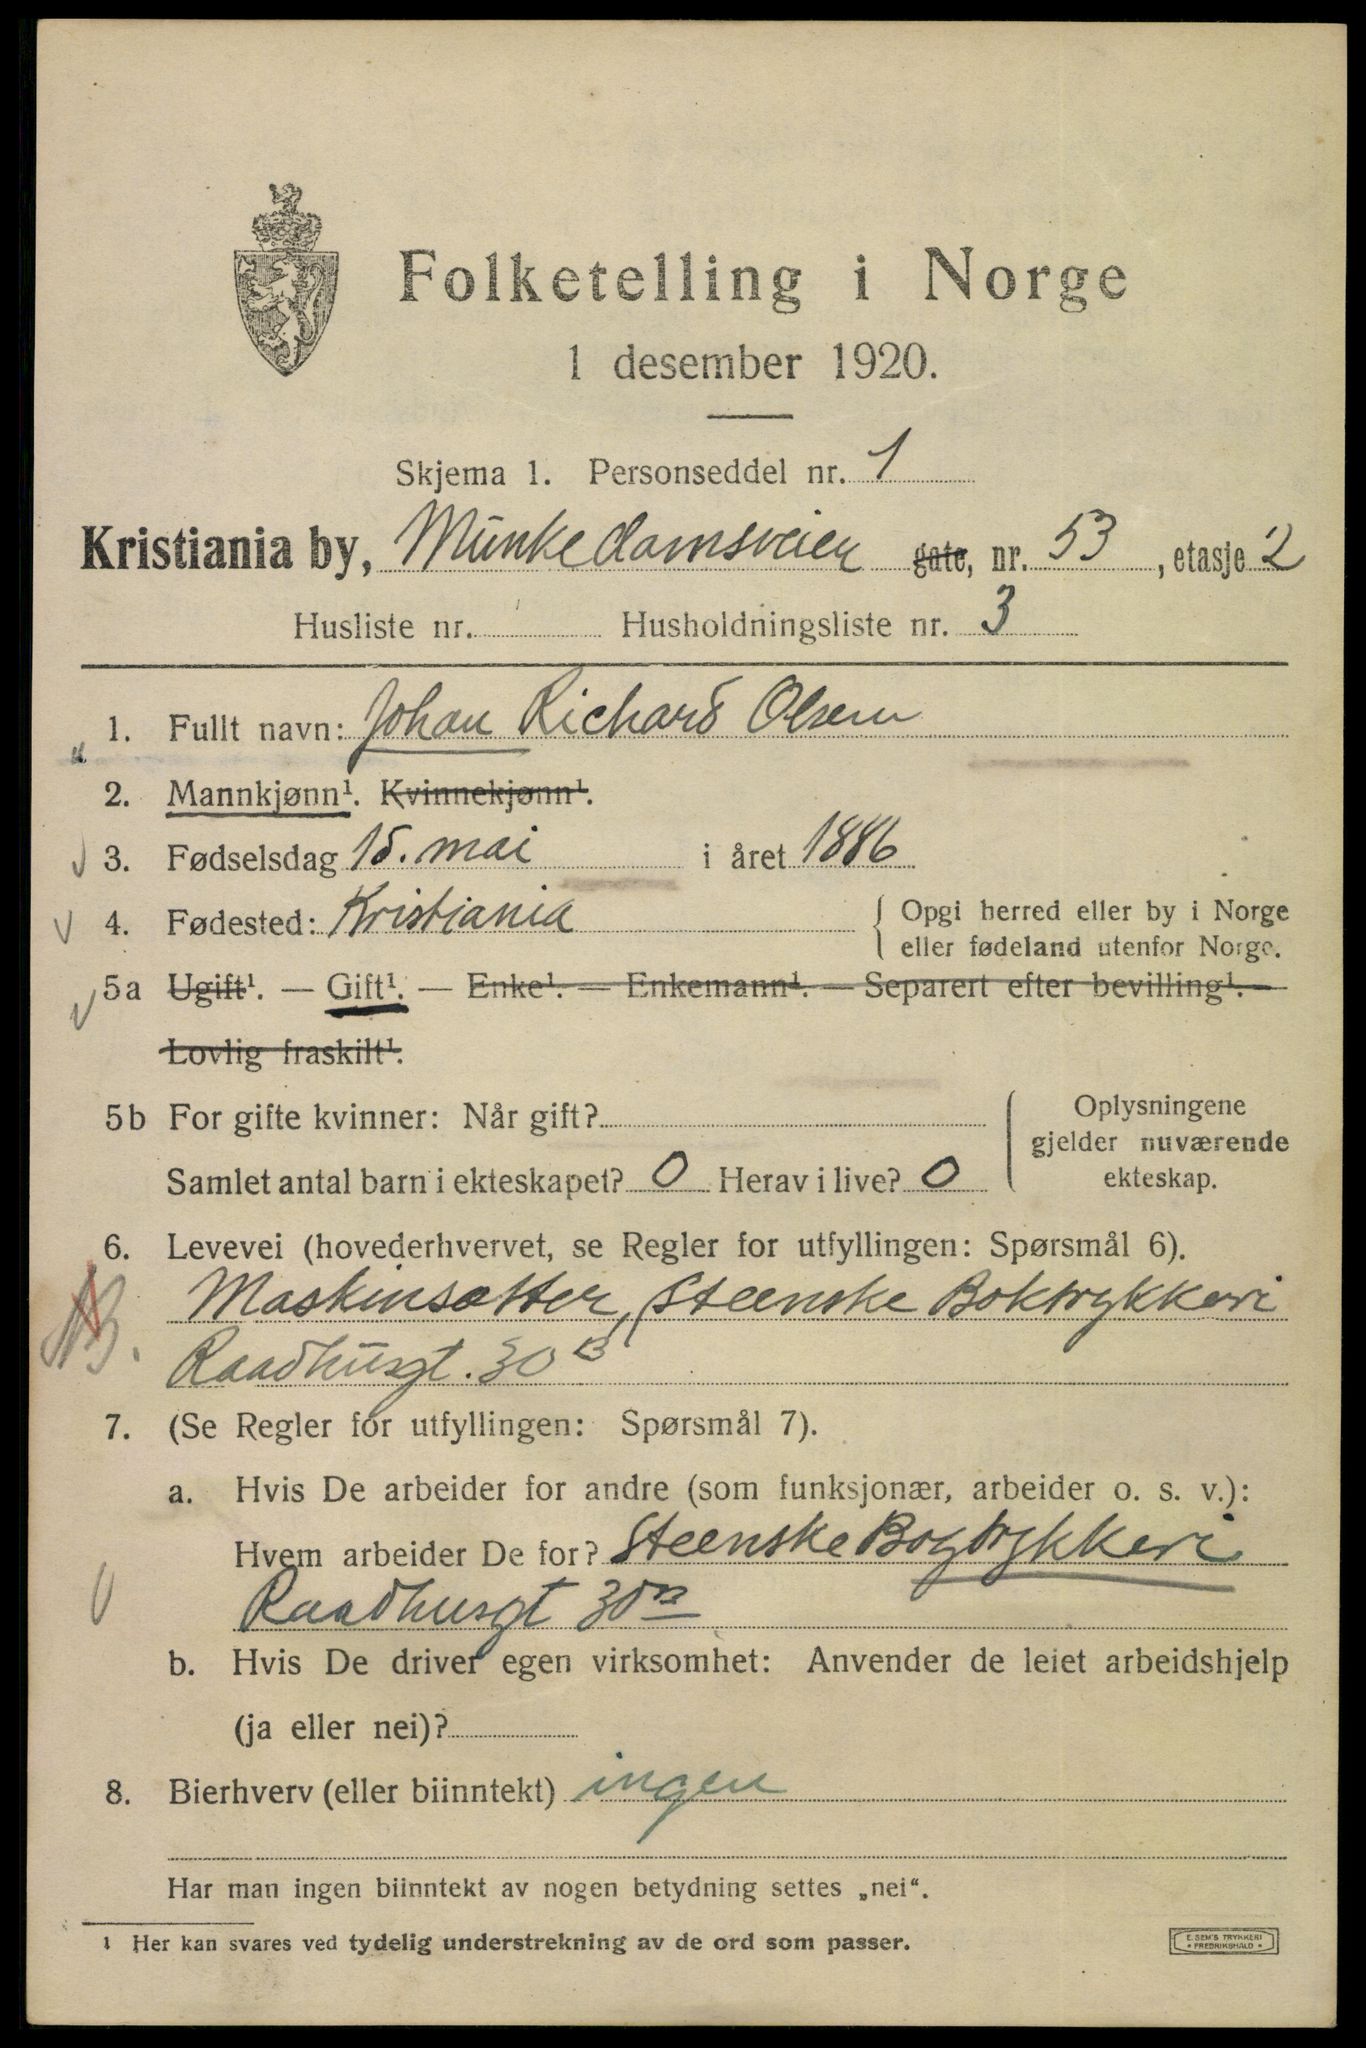 Folketelling i Norge
1 desember 1920.
Skjema 1. Personseddel nr. 1
Kristiania by, Munkedamsveien gate, nr. 53, etasje 2
Husliste nr. Husholdningsliste nr. 3
1. Fullt navn: Johan Richard Olsen
2. Mannkjønn¹. Kvinnekjønn¹.
3. Fødselsdag 15. mai i året 1886
4. Fødested: Kristiania { Opgi herred eller by i Norge
eller fødeland utenfor Norge.
5a Ugift¹. — Gift¹. — Enke¹. — Enkemann¹. — Separert efter bevilling¹. —
Lovlig fraskilt¹.
5b For gifte kvinner: Når gift?
Samlet antal barn i ekteskapet? 0 Herav i live? 0
Oplysningene
gjelder nuværende
ekteskap.
6. Levevei (hovederhvervet, se Regler for utfyllingen: Spørsmål 6).
Maskinsætter, (Steenske Boktrykkeri
Raadhusgt. 30 B
7. (Se Regler for utfyllingen: Spørsmål 7).
a. Hvis De arbeider for andre (som funksjonær, arbeider o. s. v.):
Hvem arbeider De for? Steenske Bogtrykkeri
Raadhusgt 30 B
b. Hvis De driver egen virksomhet: Anvender de leiet arbeidshjelp
(ja eller nei)?
8. Bierhverv (eller biinntekt) ingen
Har man ingen biinntekt av nogen betydning settes „nei“.
¹ Her kan svares ved tydelig understrekning av de ord som passer.
E. SEM'S TRYKKERI
• FREDRIKSHALD •